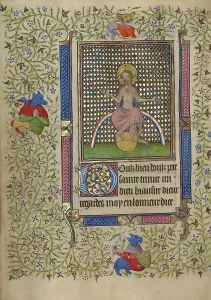 Doulz dieu doulz pere
sainte trinite un
dieu biausire dieu
regardes moy en lonneur dice